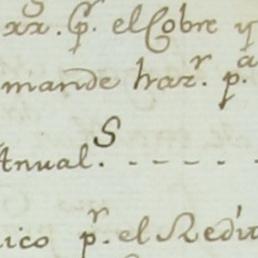 xx. p.r el Cobre y
mande haz.r p.a
Anual.s - - - -
ico p.r el Redit